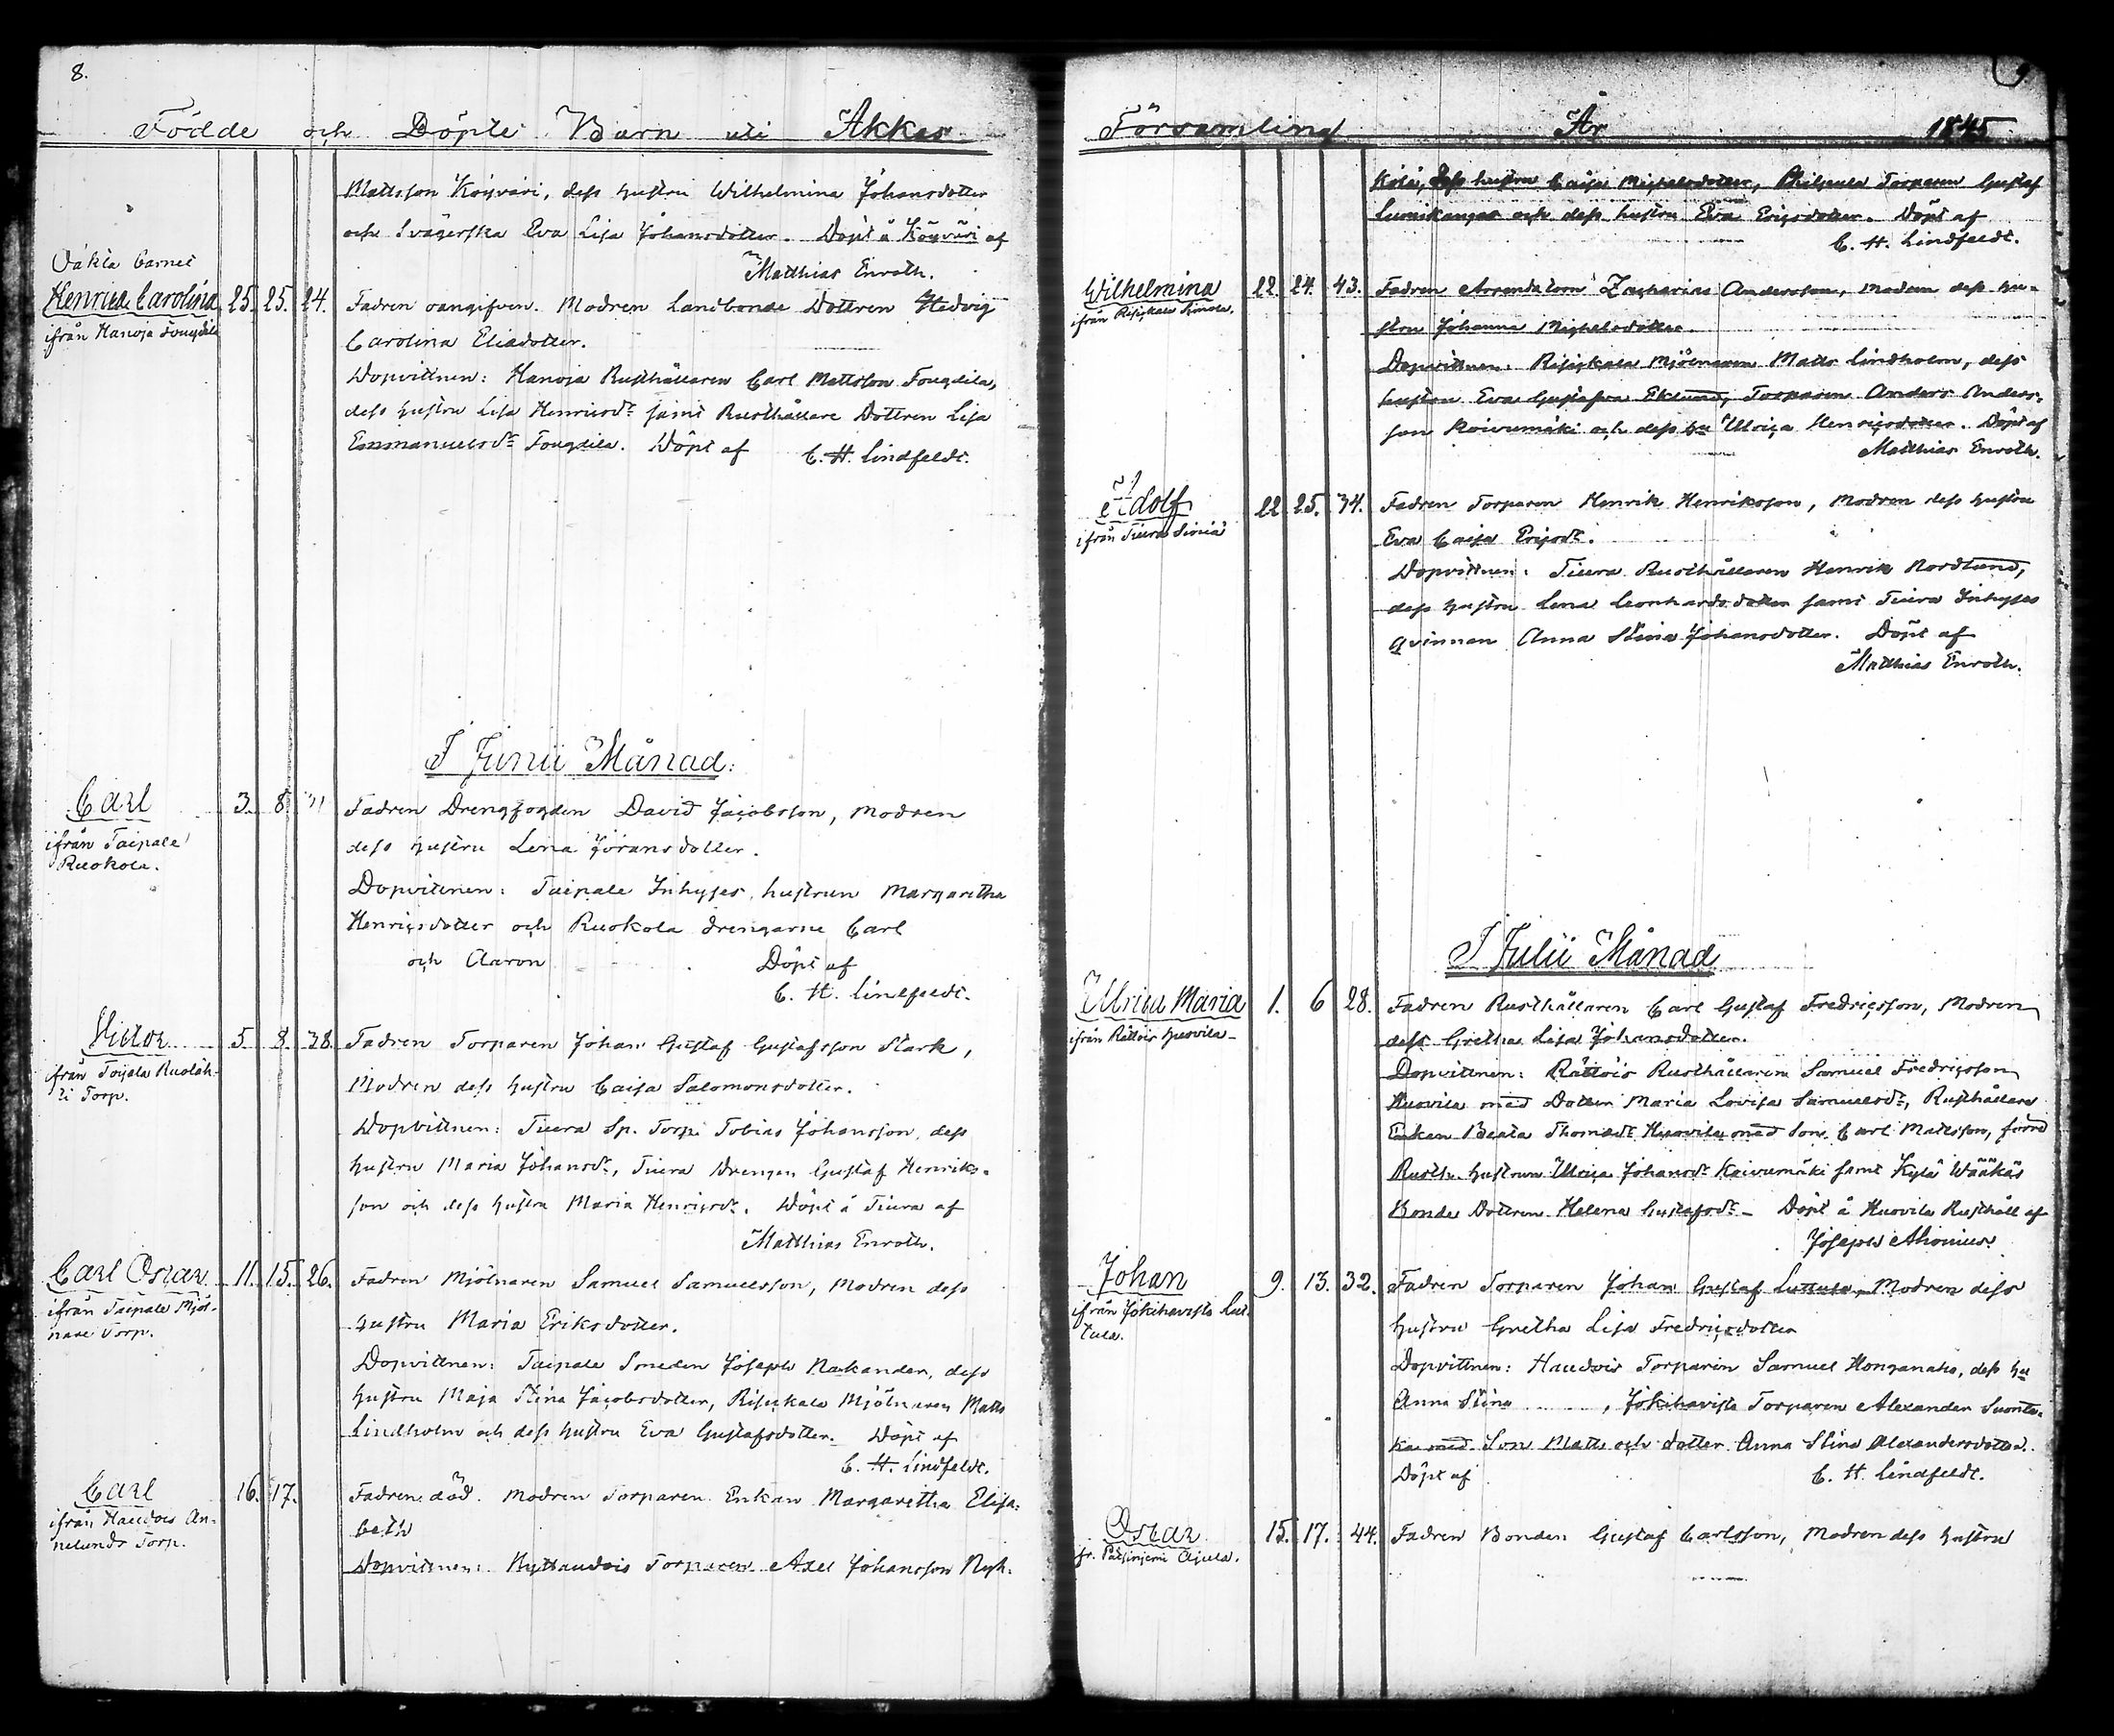 8.
Födde och Döpte Barn uti Akkas
Mattsson Köyväri, dess hustru Wilhelmina Johansdotter
och Svägerska Eva Lisa Johansdotter. Döpt å Köyväri af
Matthias Enroth.
Oäkta barnet
Henrica Carolina 25. 25. 24.
ifrån Hanoja Fougdila
Fadren oangifven. Modren Landbonde Dottren Hedvig
Carolina Eliædotter.
Dopvittnen: Hanoja Rusthållaren Carl Mattsson Fougdila,
dess hustru Lisa Henricsdr samt Rusthållare Dottren Lisa
Emmanuelsdr Fougdila. Döpt af C. H. Lindfeldt.
I Junii Månad:
Carl 3. 8. 31
ifrån Taipale
Ruokola.
Fadren Drengfogden David Jacobsson, Modren
dess hustru Lena Jöransdotter.
Dopvittnen: Taipale Inhyses hustrun Margaretha
Henricsdotter och Ruokola drengarne Carl
och Aaron Döpt af
C. H. Lindfeldt.
Victor 5 8. 38.
ifrån Toijala Ruoläh-
ti Torp.
Fadren Torparen Johan Gustaf Gustafsson Stark,
Modren dess hustru Caisa Salomonsdotter.
Dopvittnen: Tiura Sp. Torp. Tobias Johansson, dess
hustru Maria Johansdr, Tiura Drengen Gustaf Henriks-
son och dess hustru Maria Henricsdr. Döpt å Tiura af
Matthias Enroth.
Carl Oscar 11. 15. 26.
ifrån Taipale Mjöl-
nare Torp.
Fadren Mjölnaren Samuel Samuelsson, Modren dess
hustru Maria Eriksdotter.
Dopvittnen: Taipale Smeden Joseph Nackander, dess
hustru Maja Stina Jacobsdotter, Risickala Mjölnaren Matts
Lindholm och dess hustru Eva Gustafsdotter. Döpt af
C. H. Lindfeldt.
Carl 16. 17.
ifrån Haudois An-
nelunds Torp.
Fadren död. Modren Torpare Enkan Margaretha Elisa-
beth
Dopvittnen: Kyttaudois Torparen Axel Johansson Nyh-
Församling År 1845
9
Kola, dess hustru Caisa Michelsdotter, Torparen Gustaf
och dess hustru Eva Ericsdotter. Döpt af
C. H. Lindfeldt.
Wilhelmina 22. 24. 43.
ifrån Risickala
Fadren Arrendatorn Zacharias Andersson, Modren dess hu-
stru Johanna Michelsdotter.
Dopvittnen: Risickala Mjölnaren Matts Lindholm, dess
hustru Eva Gustafva Eklund, Torparen Anders Anders-
son Koivumäki och dess hu Ulrica Henricsdotter. Döpt af
Matthias Enroth.
Adolf 22 25. 34.
ifrån Tiura
Fadren Torparen Henrik Henriksson, Modren dess hustru
Eva Caisa Ericsdr.
Dopvittnen: Tiura Rusthållaren Henrik Nordlund,
dess hustru Lena Leonhardsdotter samt Tiura Inhyses
qvinnan Anna Stina Johansdotter. Döpt af
Matthias Enroth.
I Julii Månad
Ulrica Maria 1. 6 28.
ifrån Rättois Huovila
Fadren Rusthållaren Carl Gustaf Fredricsson, Modren
dess Gretha Lisa Johansdotter.
Dopvittnen: Rättois Rusthållaren Samuel Fredricsson
Huovila med Dotter Maria Lovisa Samuelsdr, Rusthållare
Enkan Beata Thomædr Huovila med Son Carl Mattsson, förre
Rusth. hustrun Ulrica Johansdr Koivumäki samt Kylä Wääkäs
Bonde Dottren Helena Gustafsdr. Döpt å Huovila Rusthåll af
Joseph Ahonius.
Johan 9. 13. 32.
ifrån Jokihavisto Lut-
tula.
Fadren Torparen Johan Gustaf Luttula, Modren dess
hustru Gretha Lisa Fredricsdotter
Dopvittnen: Haudois Torparen Samuel Honganaho, dess hu
Anna Stina ........., Jokihavisto Torparen Alexander Suonta-
ka med Son Matts och dotter Anna Stina Alexandersdotter.
Döpt af C. H. Lindfeldt.
Oscar 15. 17. 44.
fr. Päisiniemi
Fadren Bonden Gustaf Carlsson, Modren dess hustru